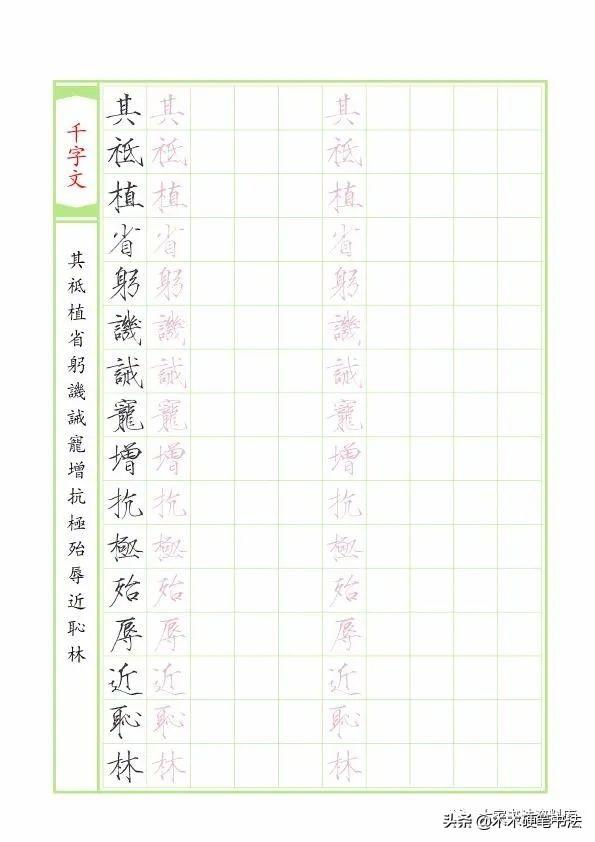 千字文
其祗植省躬譏誡寵增抗極殆辱近恥林
其祗植省躬譏誡寵增抗極殆辱近恥林
其祗植省躬譏誡寵增抗極殆辱近恥林
其祗植省躬譏誡寵增抗極殆辱近恥林
头条 @木木硬笔书法